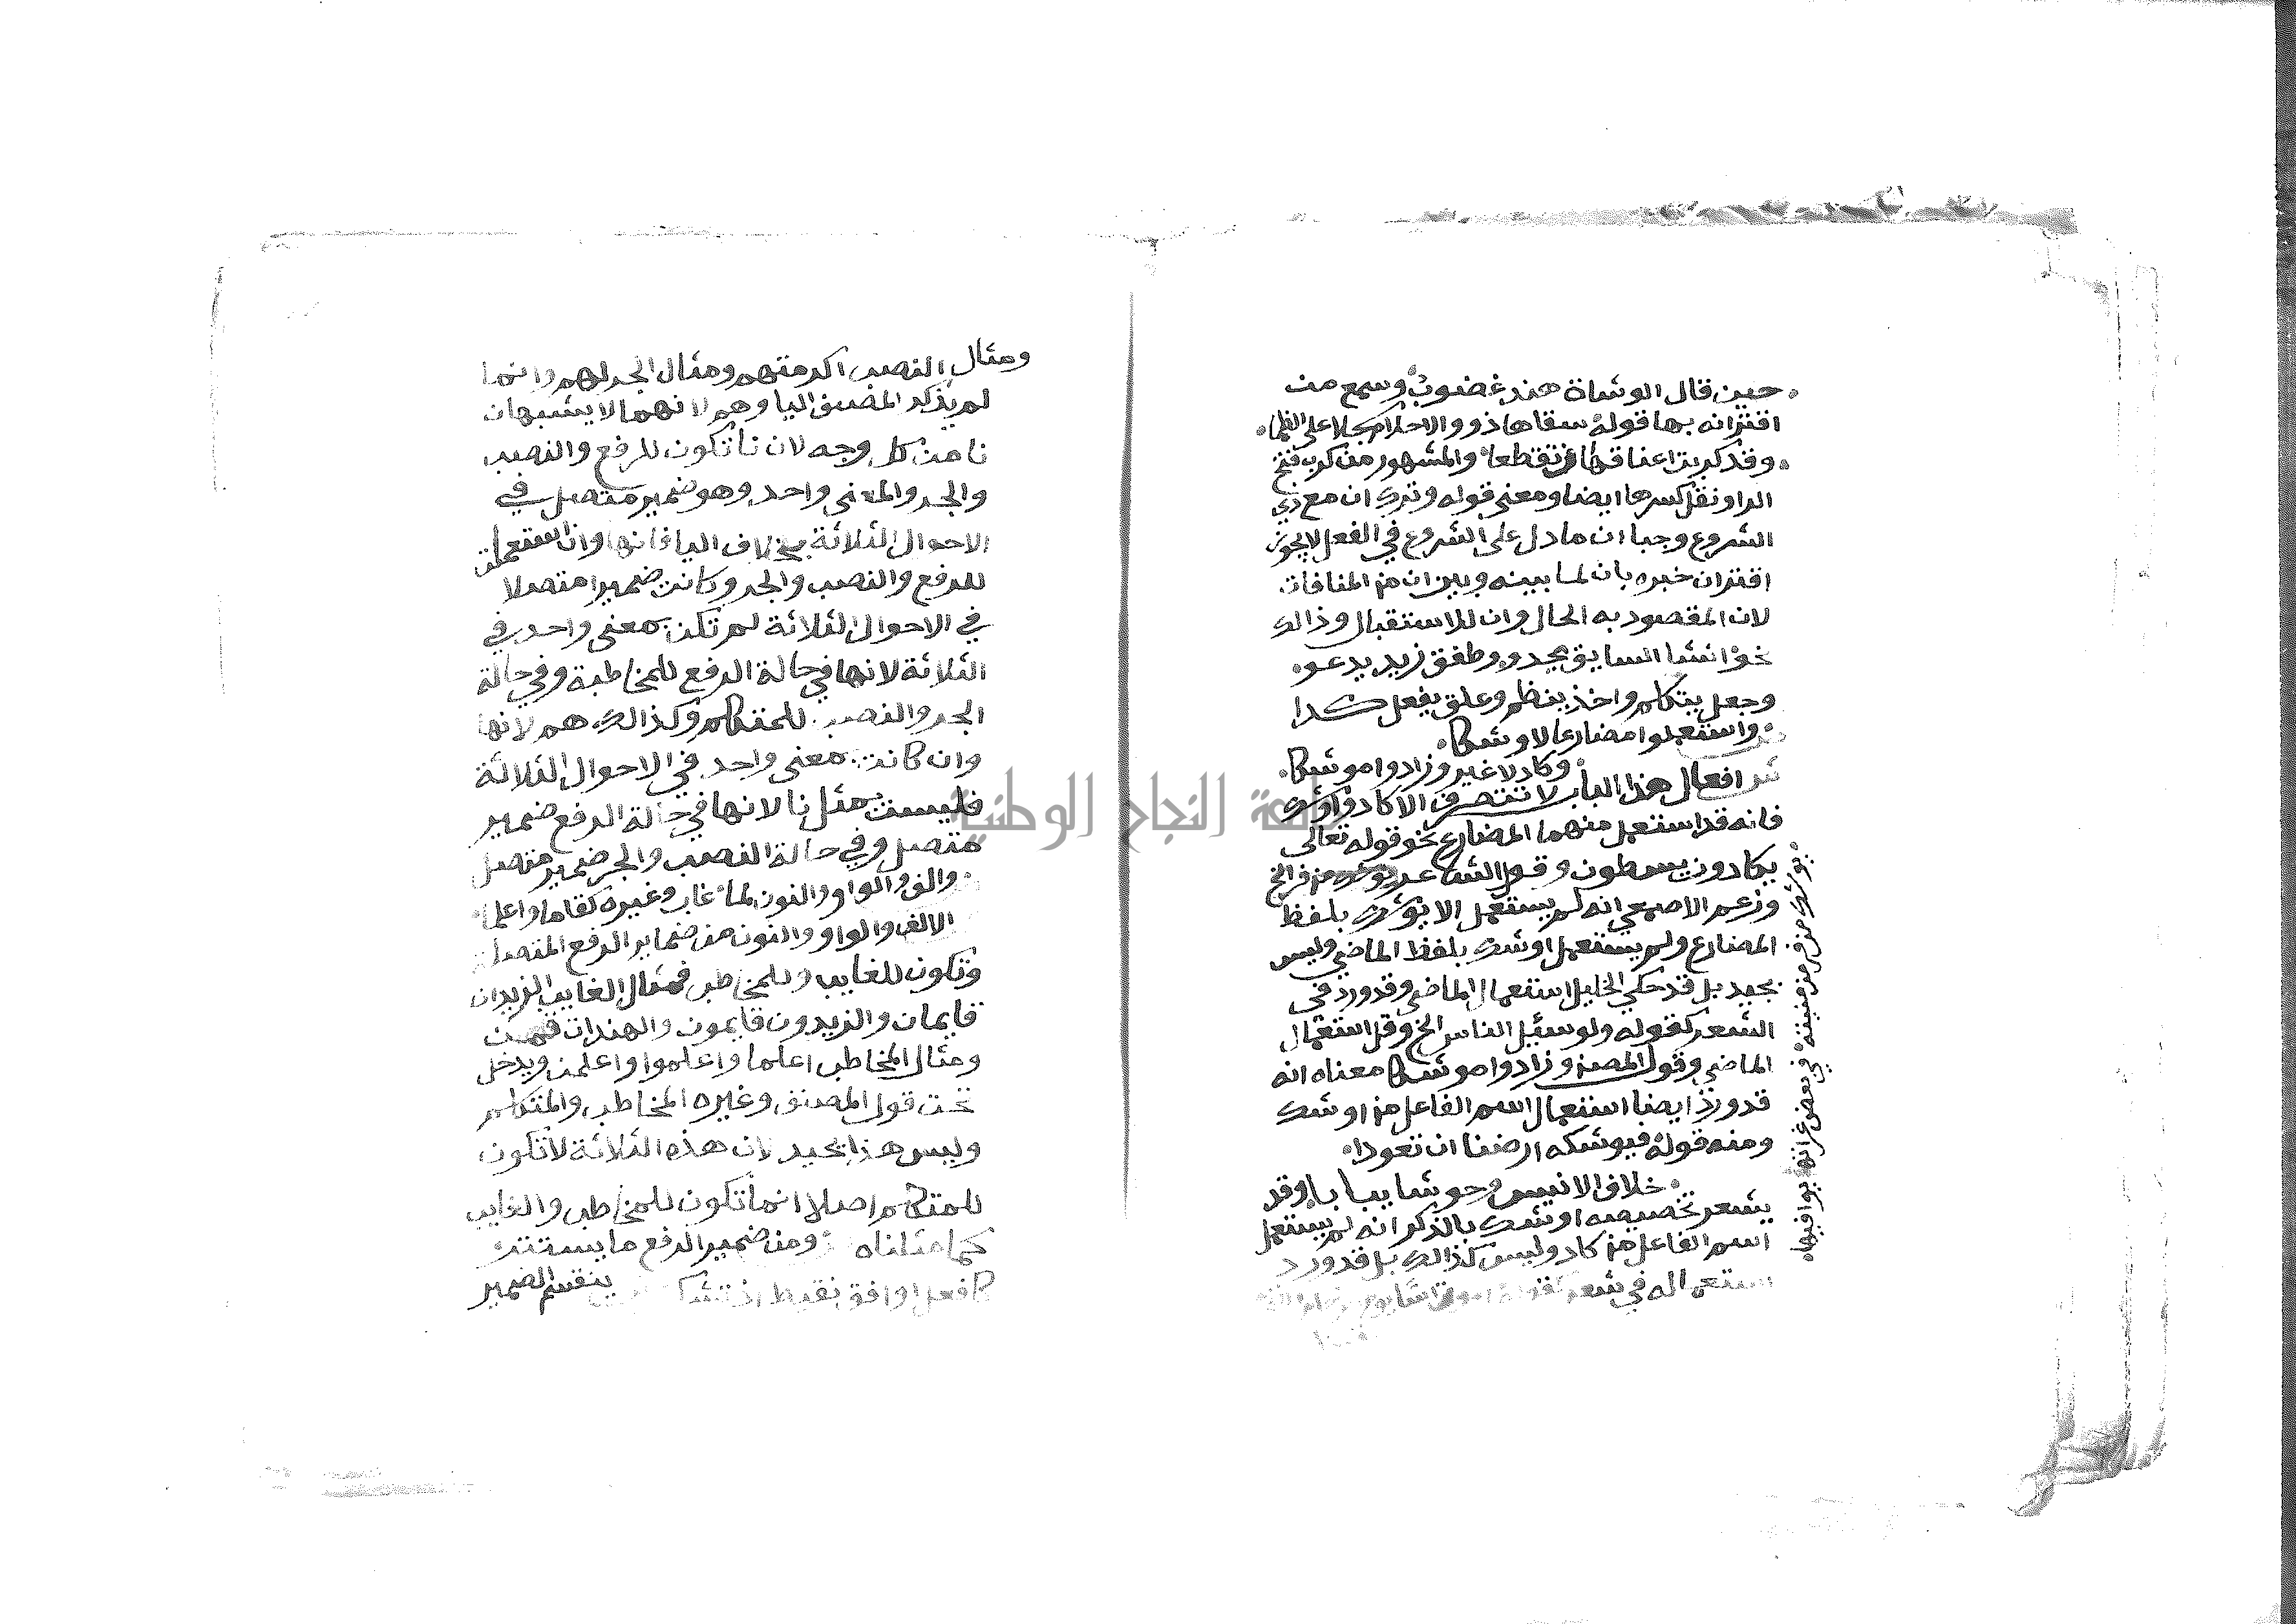 حين قال الوشاة هند غضوب وسمع من
اقترانه بها قوله سقاها ذوو الاحلام سجلا على الظما
وقد كربت اعناقها ان تقطعا والمشهور من كرب فتح
الرا ونقل كسرها ايضا ومعنى قوله وترك ان مع ذي
الشروع وجبا ان ما دل على الشروع في الفعل لا يجوز
اقتران خبره بان لما بينه وبين ان من المنافات
لان المقصود به الحال وان للاستقبال وذالك
نحو انشا السايق يحدو وطفق زيد يدعو
وجعل يتكلم واخذ ينظم وعلق يفعل كذا
واستعملوا مضارعا لاوشكا
وكاد لا غير وزادوا موشكا
افعال هذا الباب لا تتصرف الا كاد واوشك
فانه قد استعمل منهما المضارع نحو قوله تعالى
يكادون يسطون وقول الشاعر يوشك من فر الخ
وزعم الاصمعي انه لم يستعمل الا يوشك بلفظ
المضارع ولم يستعمل اوشك بلفظ الماضي وليس
بجيد بل قد حكى الخليل استعمال الماضي وقد ورد في
الشعر كقوله ولو سئيل الناس الخ وقل استعمال
الماضي وقول المصنف وزادوا موشكا معناه انه
قد ورد ايضا استعمال اسم الفاعل من اوشك
ومنه قوله فموشكه ارضنا ان تعودا
خلاف الانيس وحوشا يبابا وقد
يشعر تخصيصه اوشك بالذكر انه لم يستعمل
اسم الفاعل من كاد وليس كذالك بل قد ورد
استعماله في شعر
يوشك من فر من منيته في بعض غراته يوافيها
ومثال النصب اكرمتهم ومثال الجر لهم وانما
لم يذكر المصنف اليا وهم لانهما لا يشبهان
نا من كل وجه لان نا تكون للرفع والنصب
والجر والمعنى واحد وهو ضمير متصل في
الاحوال الثلاثة بخلاف اليا فانها وان استعملت
للرفع والنصب والجر وكانت ضميرا متصلا
في الاحوال الثلاثة لم تكن بمعنى واحد في
الثلاثة لانها في حالة الرفع للمخاطبة وفي حالة
الجر والنصب للمتكلم وكذالك هم لانها
وان كانت بمعنى واحد في الاحوال الثلاثة
فليست مثل نا لانها في حالة الرفع ضمير
متصل وفي حالة النصب والجر ضمير متصل
والف والواو والنون لما غاب وغيره كقاما واعلما
الالف والواو والنون من ضماير الرفع المتصلة
وتكون للغايب وللمخاطب فمثال الغايب الزيدان
قايمان والزيدون قايمون والهندات قمن
ومثال المخاطب اعلما واعلموا واعلمن ويدخل
تحت قول المصنف وغيره المخاطب والمتكلم
وليس هذا بجيد لان هذه الثلاثة لا تكون
للمتكلم اصلا انما تكون للمخاطب والغايب
كما مثلناه ومن ضمير الرفع ما يستتر
كافعل اوافق نغتبط اذ تشكر ينقسم الضمير
جامعة النجاح الوطنية